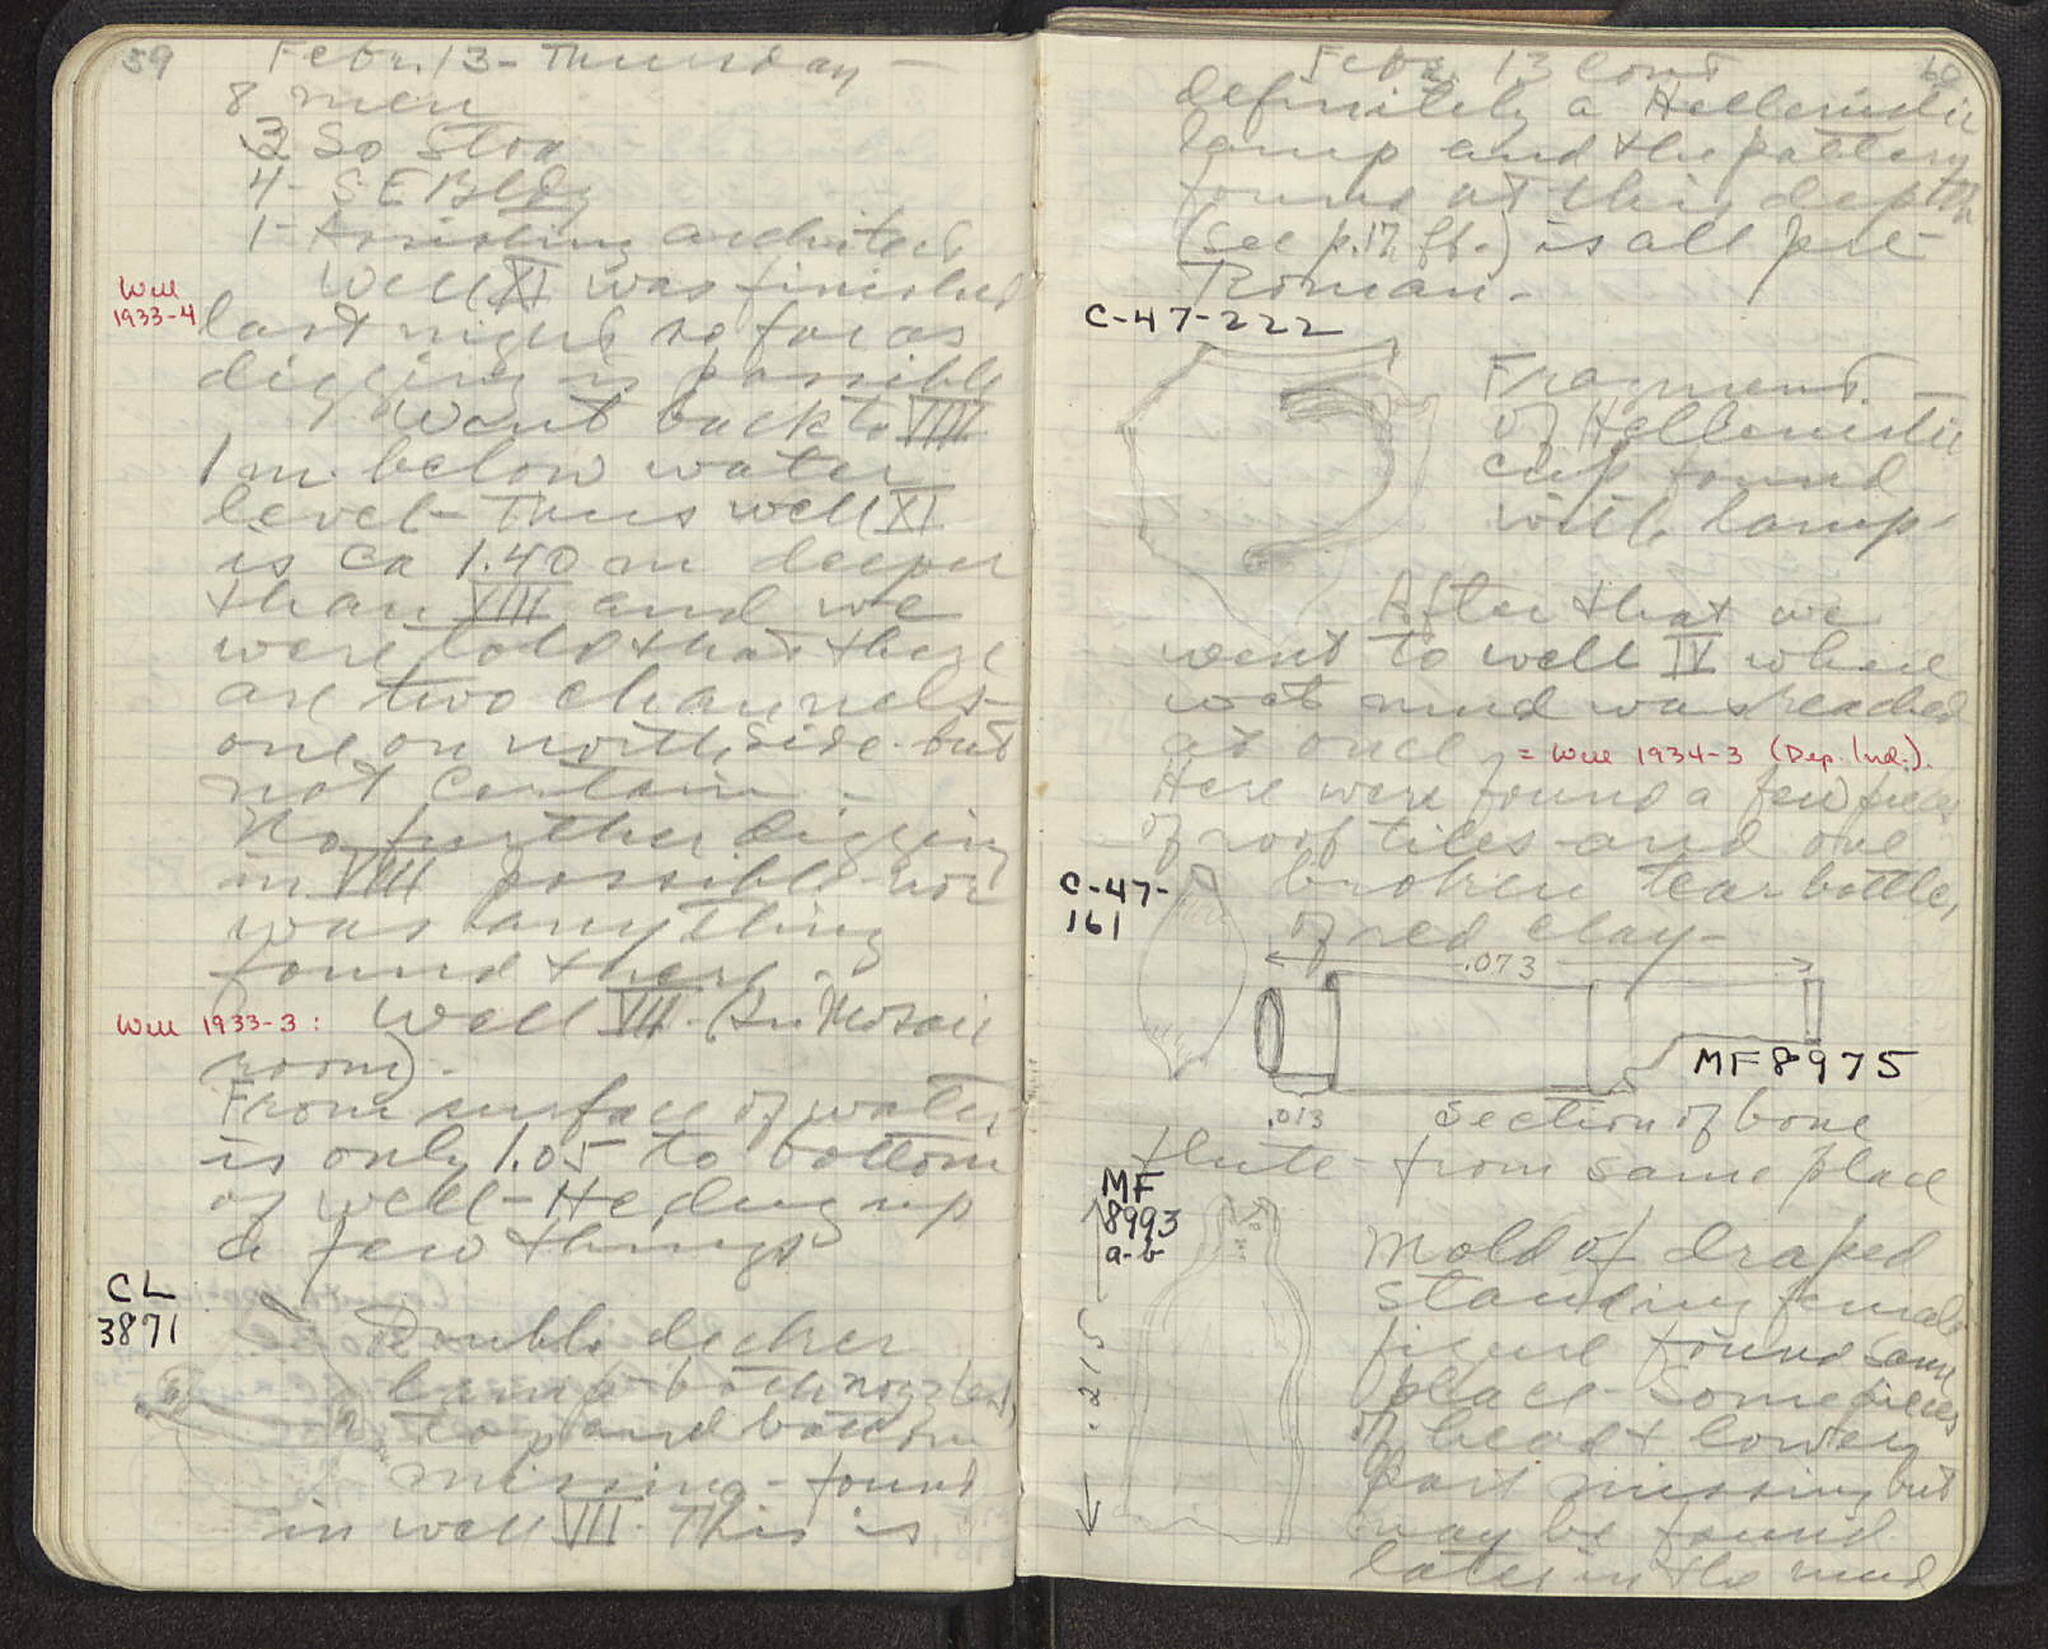 59
Febr. 13 - Thursday -
8 men
3 So Stoa
4 - S E Bldg
1 - Assisting architect
Well XI was finished
Well
1933-4
last night so far as
digging is possible
Went back to VIII
1 m. below water
level - Thus well XI
is ca 1.40 m deeper
than VIII and we
were told that there
are two channels -
one on north side but
not certain -
No further digging
in VIII possible nor
was anything
found there.
Well 1933-3:
Well VII (In Mosaic
room) -
From surface of water
is only 1.05 to bottom
of well - He dug up
a few things
CL
3871
Double decker
lamp both nozzles,
top and bottom
missing - found
in well VII. This is
Febr. 13 cont
60
definitely a Hellenistic
lamp and the pottery
found at this depth
(see p. 17 ff.) is all pre-
Roman -
C-47-222
Fragment -
of Hellenistic
cup found
with lamp -
After that we
went to well IV where
wet mud was reached
at once
= Well 1934-3 (Dep. Ind.).
Here were found a few pieces
of roof tiles and one
C-47-
161
broken tear bottle,
of red clay -
.073
MF8975
.013
Section of bone
flute - from same place
MF
8993
a-b
.215
Mold of draped
standing female
figure found same
place - Some pieces
of head + lower
part missing but
may be found
later in the mud